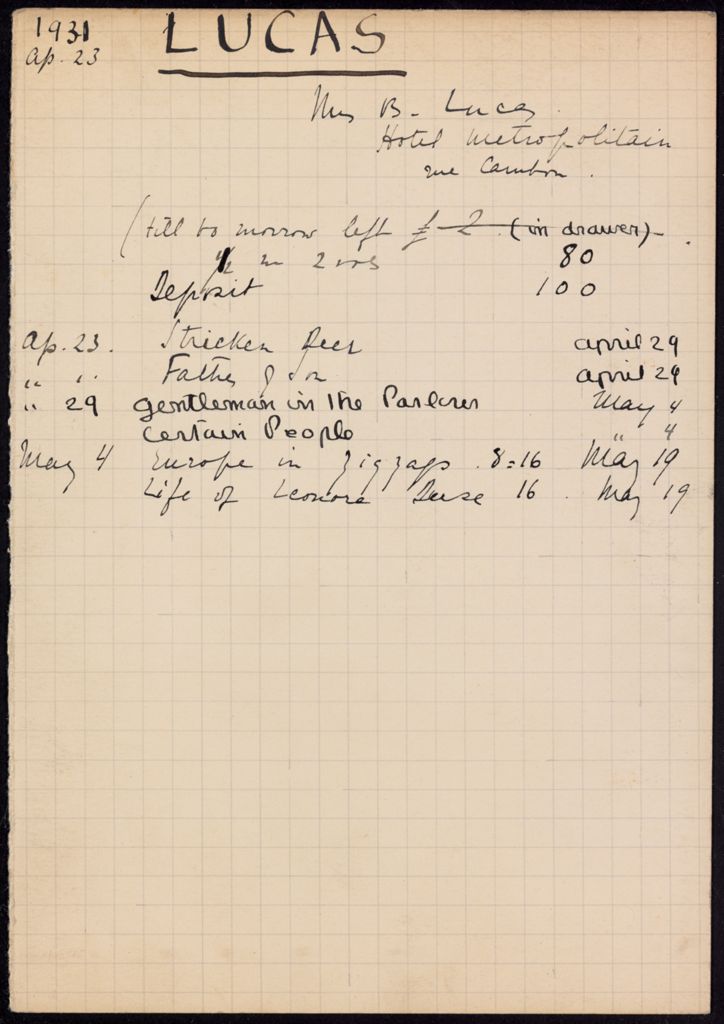 1931
Ap. 23
LUCAS
Mrs B. Lucas.
Hotel Metropolitain
rue Cambon.
(till to morrow left £ 2 (in drawer)
1/2 m 2 vols 80
Deposit 100
Ap. 23. Stricken Deer april 29
" " Father & Son april 29
" 29 gentleman in the Parlour May 4
certain People " 4
May 4 Europe in Zigzags 8=16 May 19
Life of Leonora Duse 16. May 19